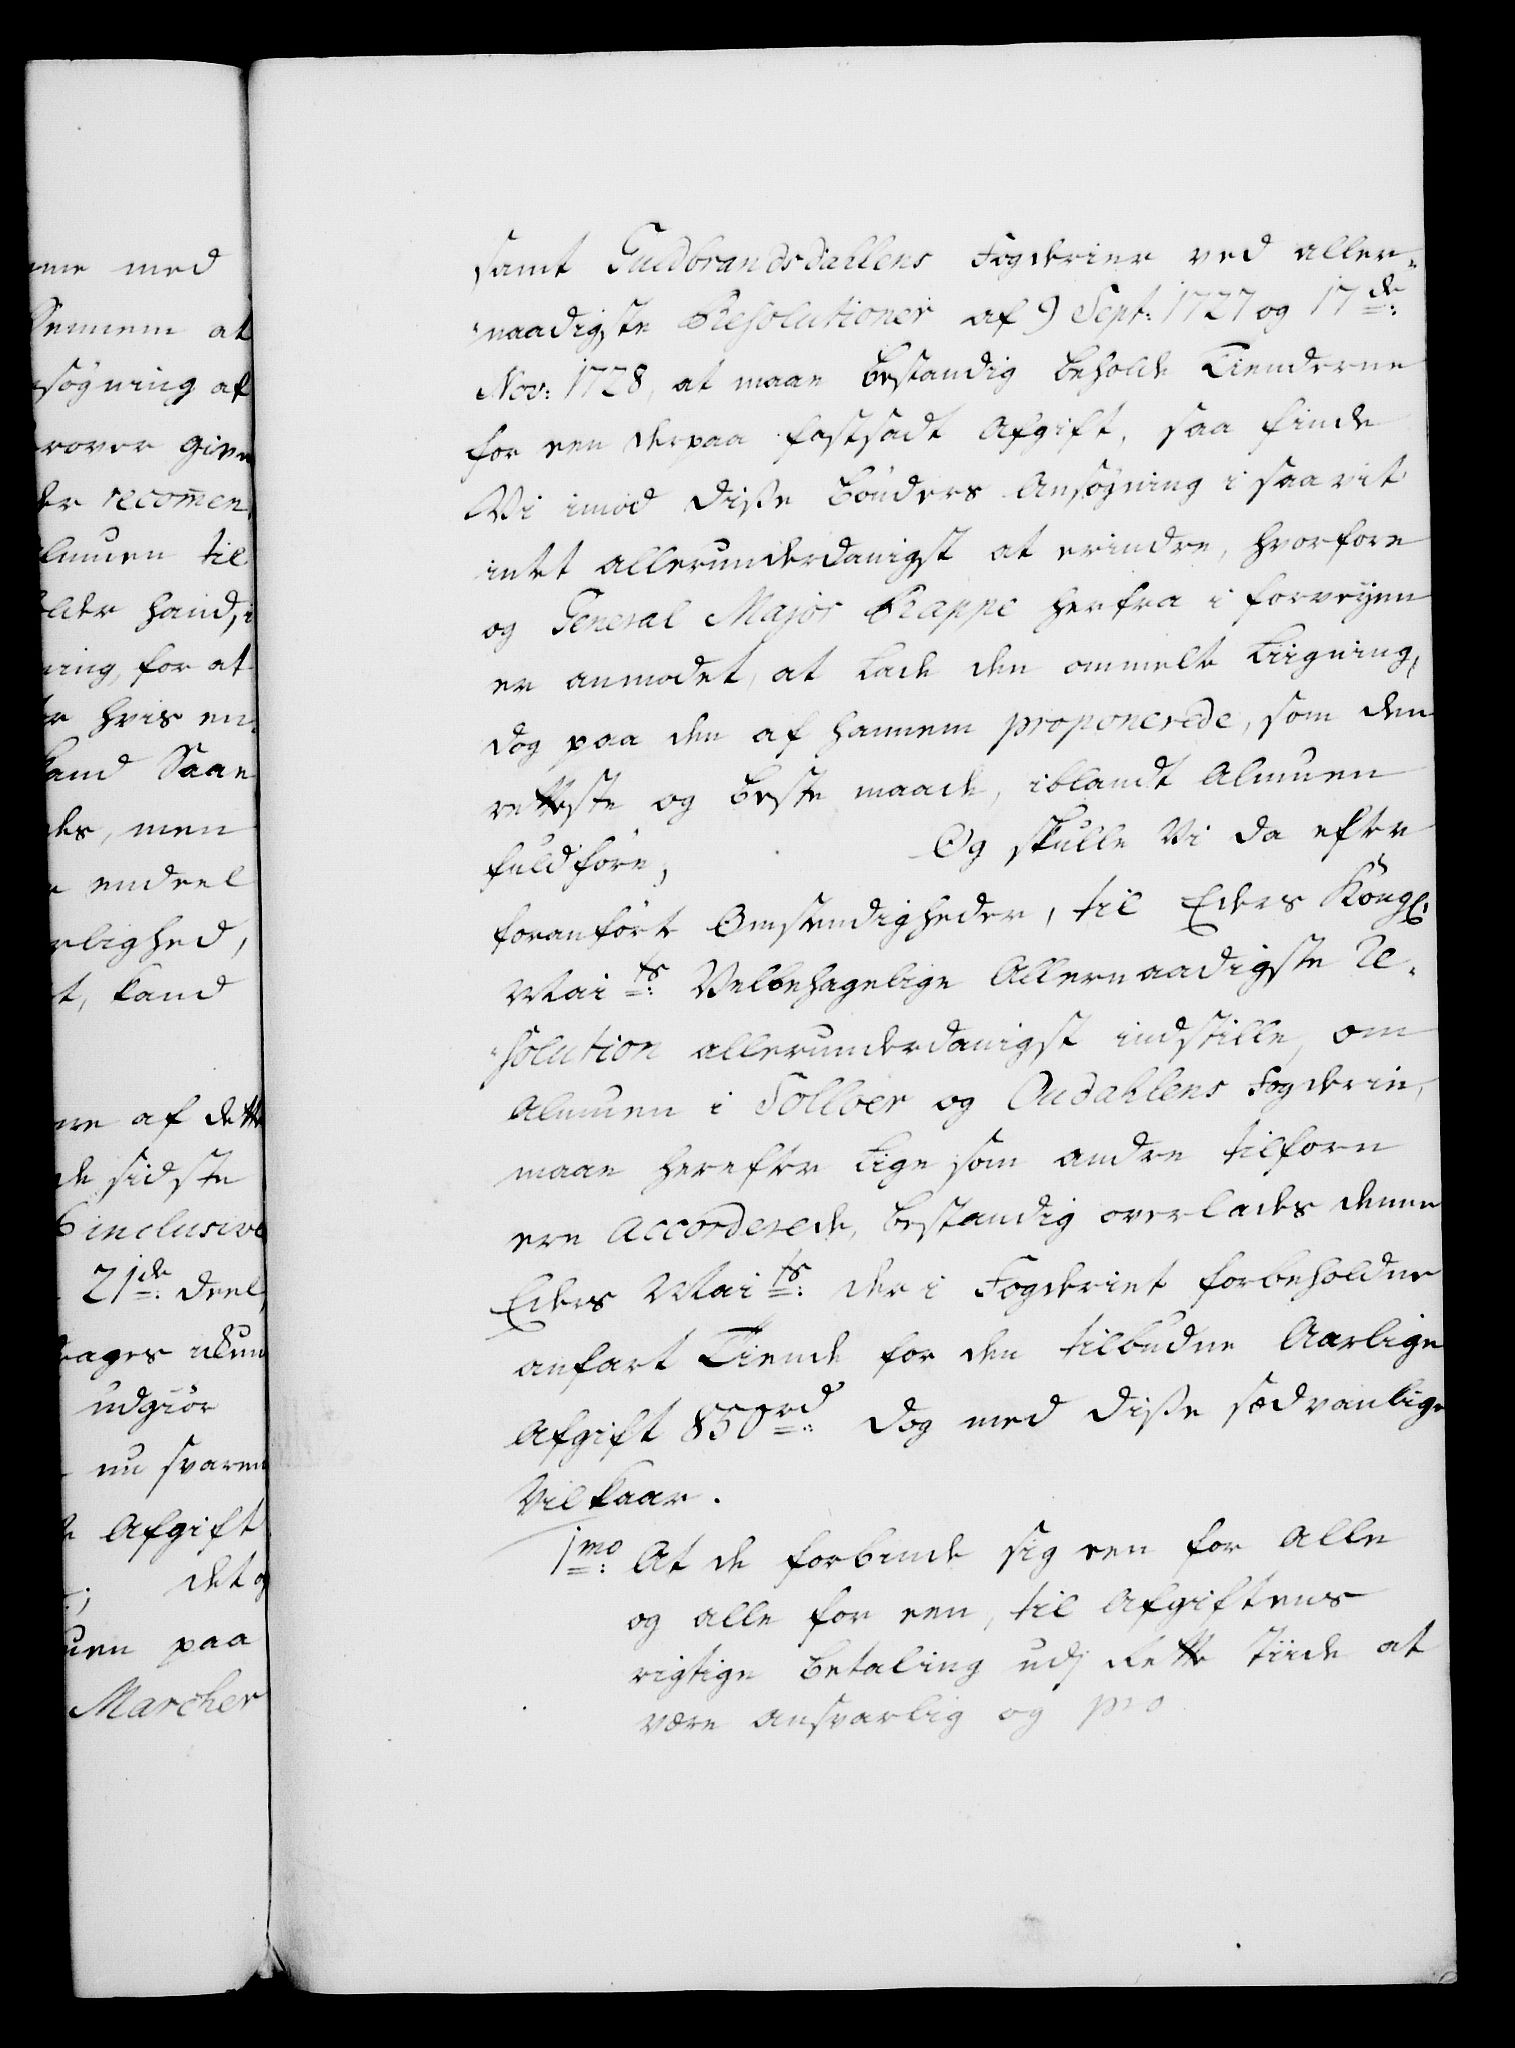 me med
Sennem at
søgning af
rover give
der recom̄en,
lmuen til
eller hand, i
ning, for at
hvis en,
kand Saae
des, men
endeel
rlighed,
t, kand
ere af dette
de sidste
6 inclusive
21de: Deel,
drages
udgiør
nu svaren
Afgift
det og
uen paa
Marcher
samt Guldbrandsdahlens Fogderier ved aller-
naadigste Resolutioner af 9 Sept: 1727 og 17de:
Nov: 1728, at maae bestandig beholde Tienderne
for een derpaa fastsadt Afgift, saa finde
Vi imod disse Bønders Ansøgning i saa vit
intet allerunderdanigst at erindre, hvorfore
og General Major Rappe herfra i forveyen
er anmodet, at lade den ommelte Liigning,
dog paa den af hannem proponerede, som den
retteste og beste maade, iblandt Almuen
fuldføre, Og skulle Vi da efter
foranførte Omstændigheder, til Eders Kongl:
Maits: Velbehagelige Allernaadigste Re-
solution allerunderdanigst indstille, om
Almuen i Solløer og Oudahlens Fogderie,
maae herefter lige som andre tilforn
ere Accorderede, bestandig overlades denne
Eders Maits: der i Fogderiet forbeholdne
anpart Tiende for den tilbudne Aarlige
Afgift 850rd: dog med disse sædvanlige
Vilkaar.
1mo: At de forbinde sig een for alle
og alle for een, til Afgiftens
rigtige betaling udj Rette Tiide at
være ansvarlig og pro